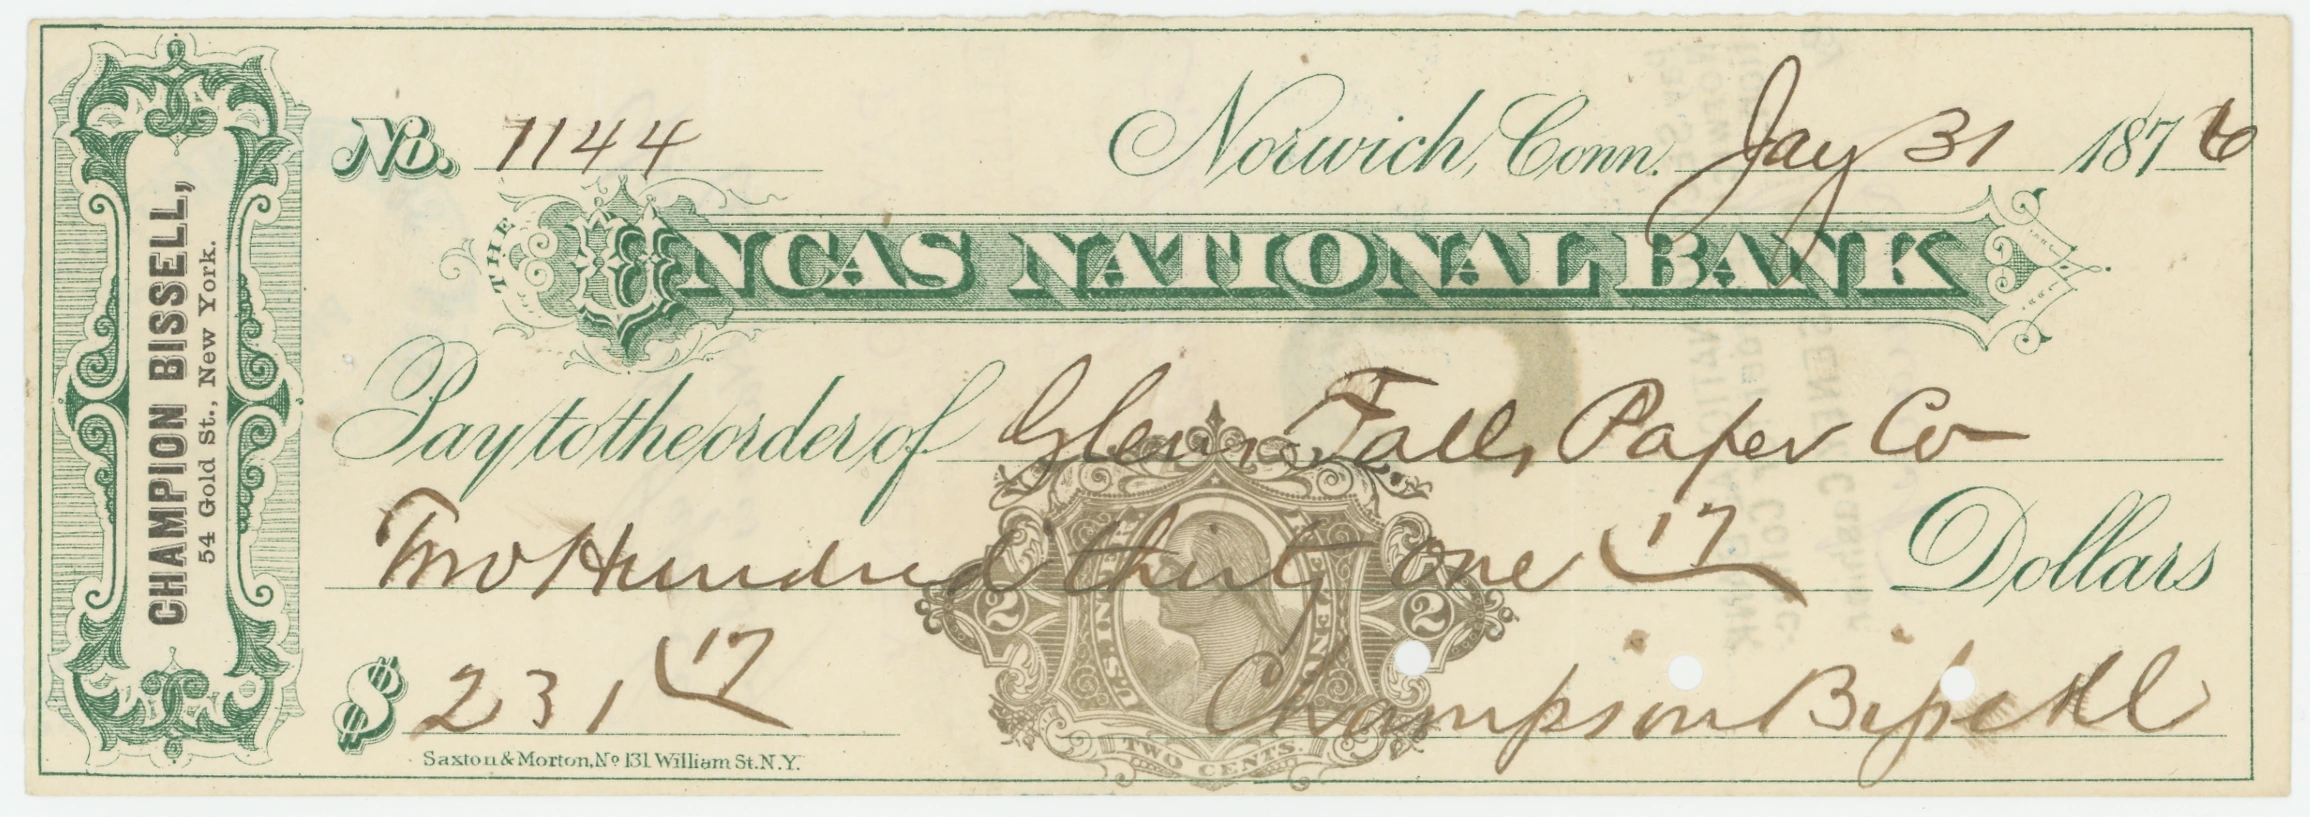 CHAMPION BISSELL,
54 Gold St., New York.
No. 1144
Norwich, Conn. Jay 31 1876
THE UNCAS NATIONAL BANK
Pay to the order of Glenn Falls Paper Co
Two Hundred thirty one 17 Dollars
$ 231 17
Champion Bissell
U.S. INTER
ENUE
2 2
TWO CENTS.
Saxton & Morton, No 131 William St. N.Y.